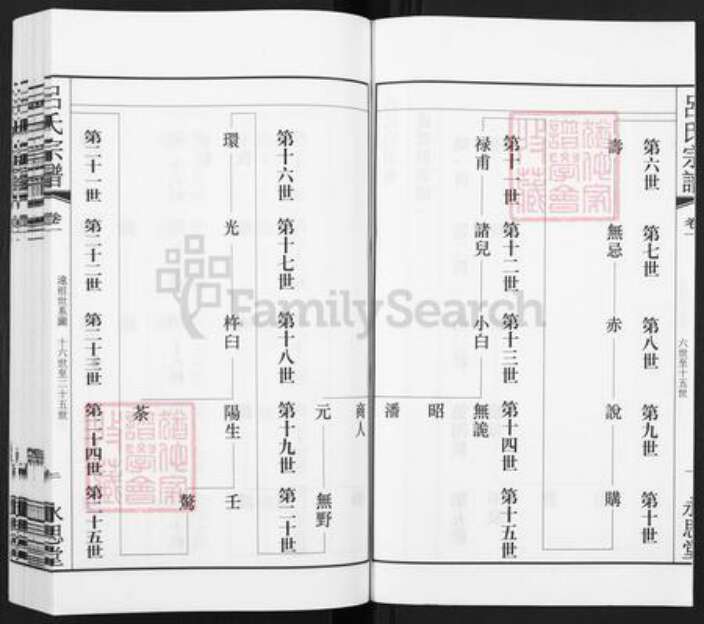 呂氏宗譜
卷一
六世至十五世
一
永思堂
第六世 第七世 第八世 第九世 第十世
壽 無忌 赤 說 購
第十一世 第十二世 第十三世 第十四世 第十五世
祿甫 諸兒
小白 無詭
昭
潘
商人
元 無野
第十六世 第十七世 第十八世 第十九世 第二十世
環 光 杵臼 陽生 壬
荼
驁
第二十一世 第二十二世 第二十三世 第二十四世 第二十五世
呂氏宗譜
卷一
遠祖世系圖 十六世至二十五世
二
永思堂
FamilySearch